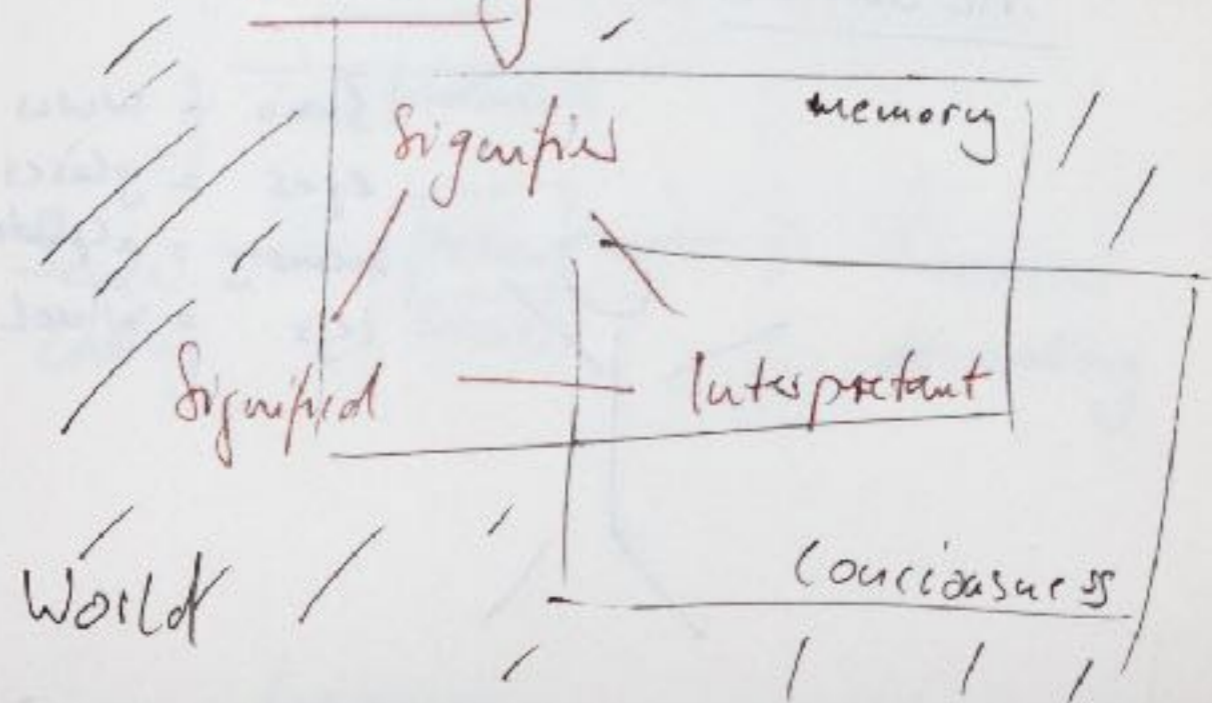 memory
Signifier
Signified
Interpretant
Conciousness
World